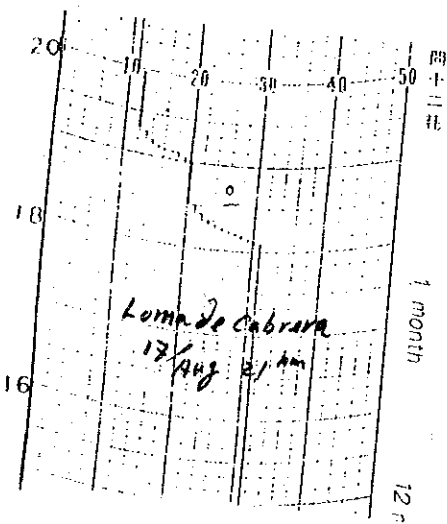 20
10 20 30 40 50
18
Loma de Cabrera
17/Aug 21
16
1 month
12